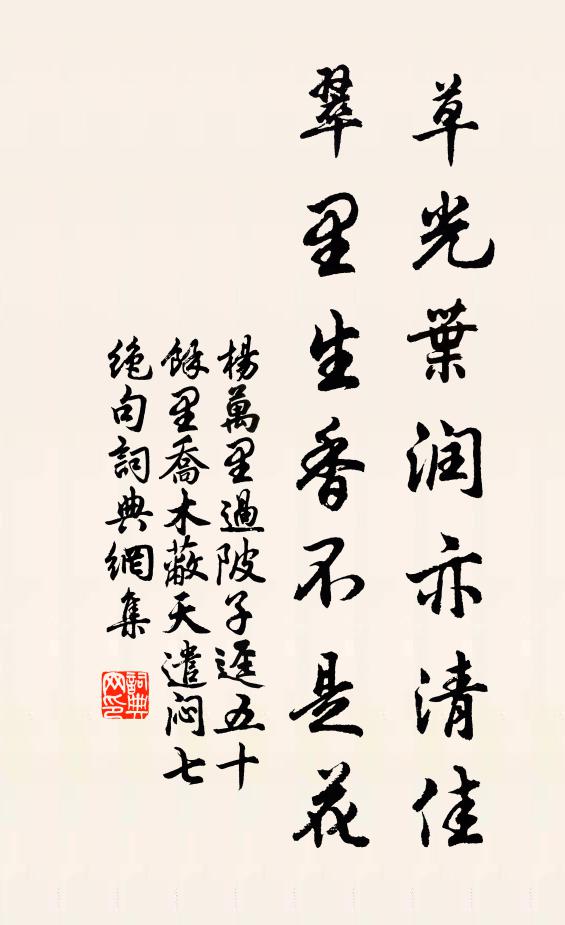 草光葉润亦清佳
翠里生香不是花
楊萬里過陂子逕五十
餘里喬木蔽天遣闷七
絶句詞典網集
詞典网印